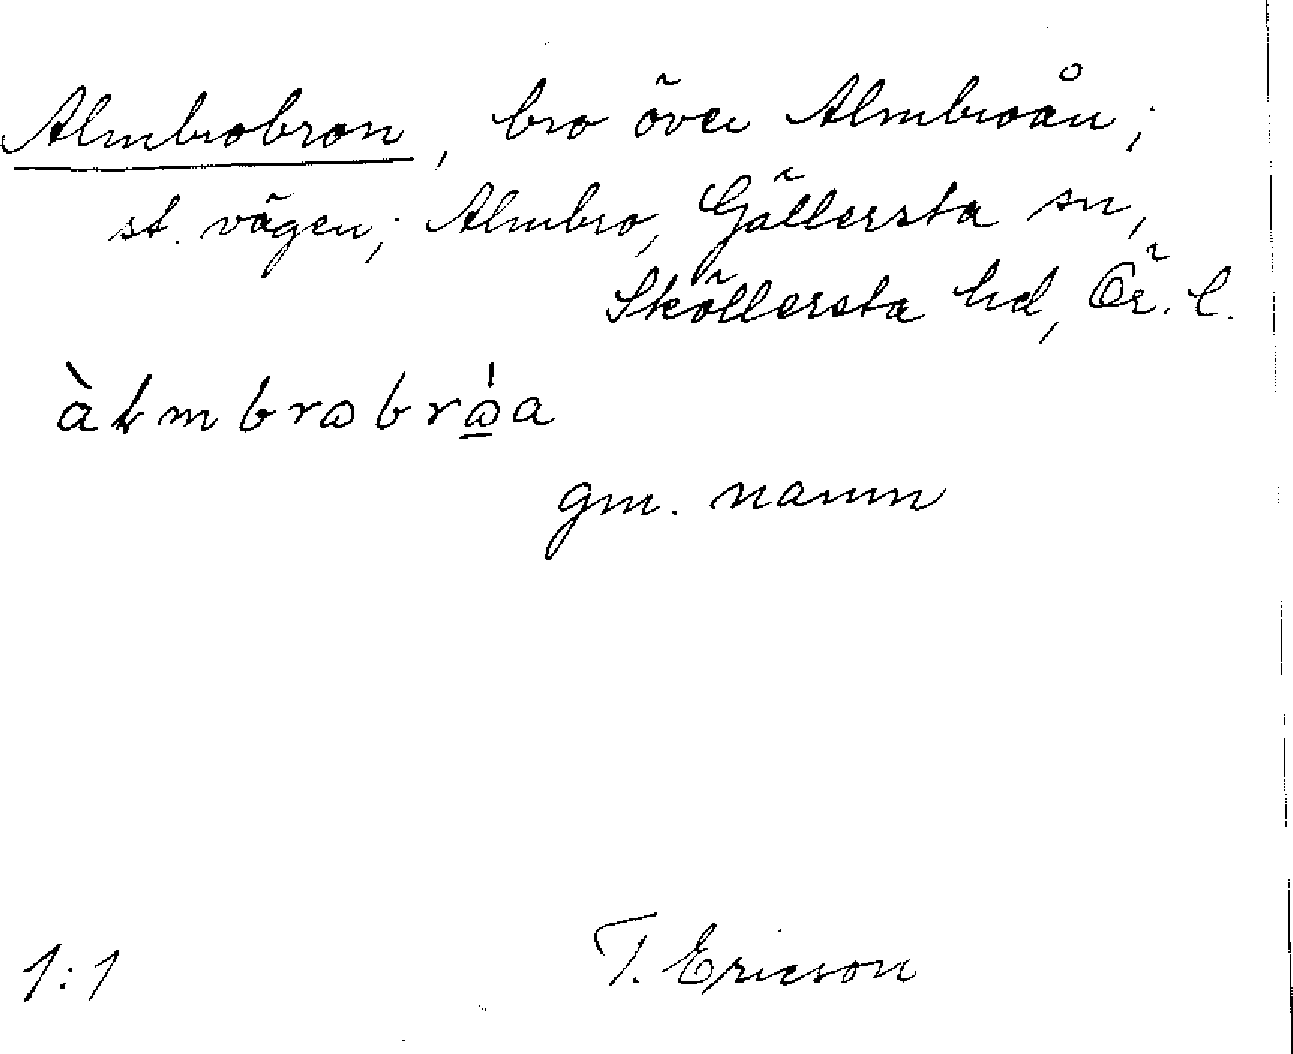 Almbrobron, bro över Almbroån;
st. vägen; Almbro, Gällersta sn,
Sköllersta hd, Ör. l.
àłmbrωbrώ̲a
gm. namn
1:1 T. Ericson